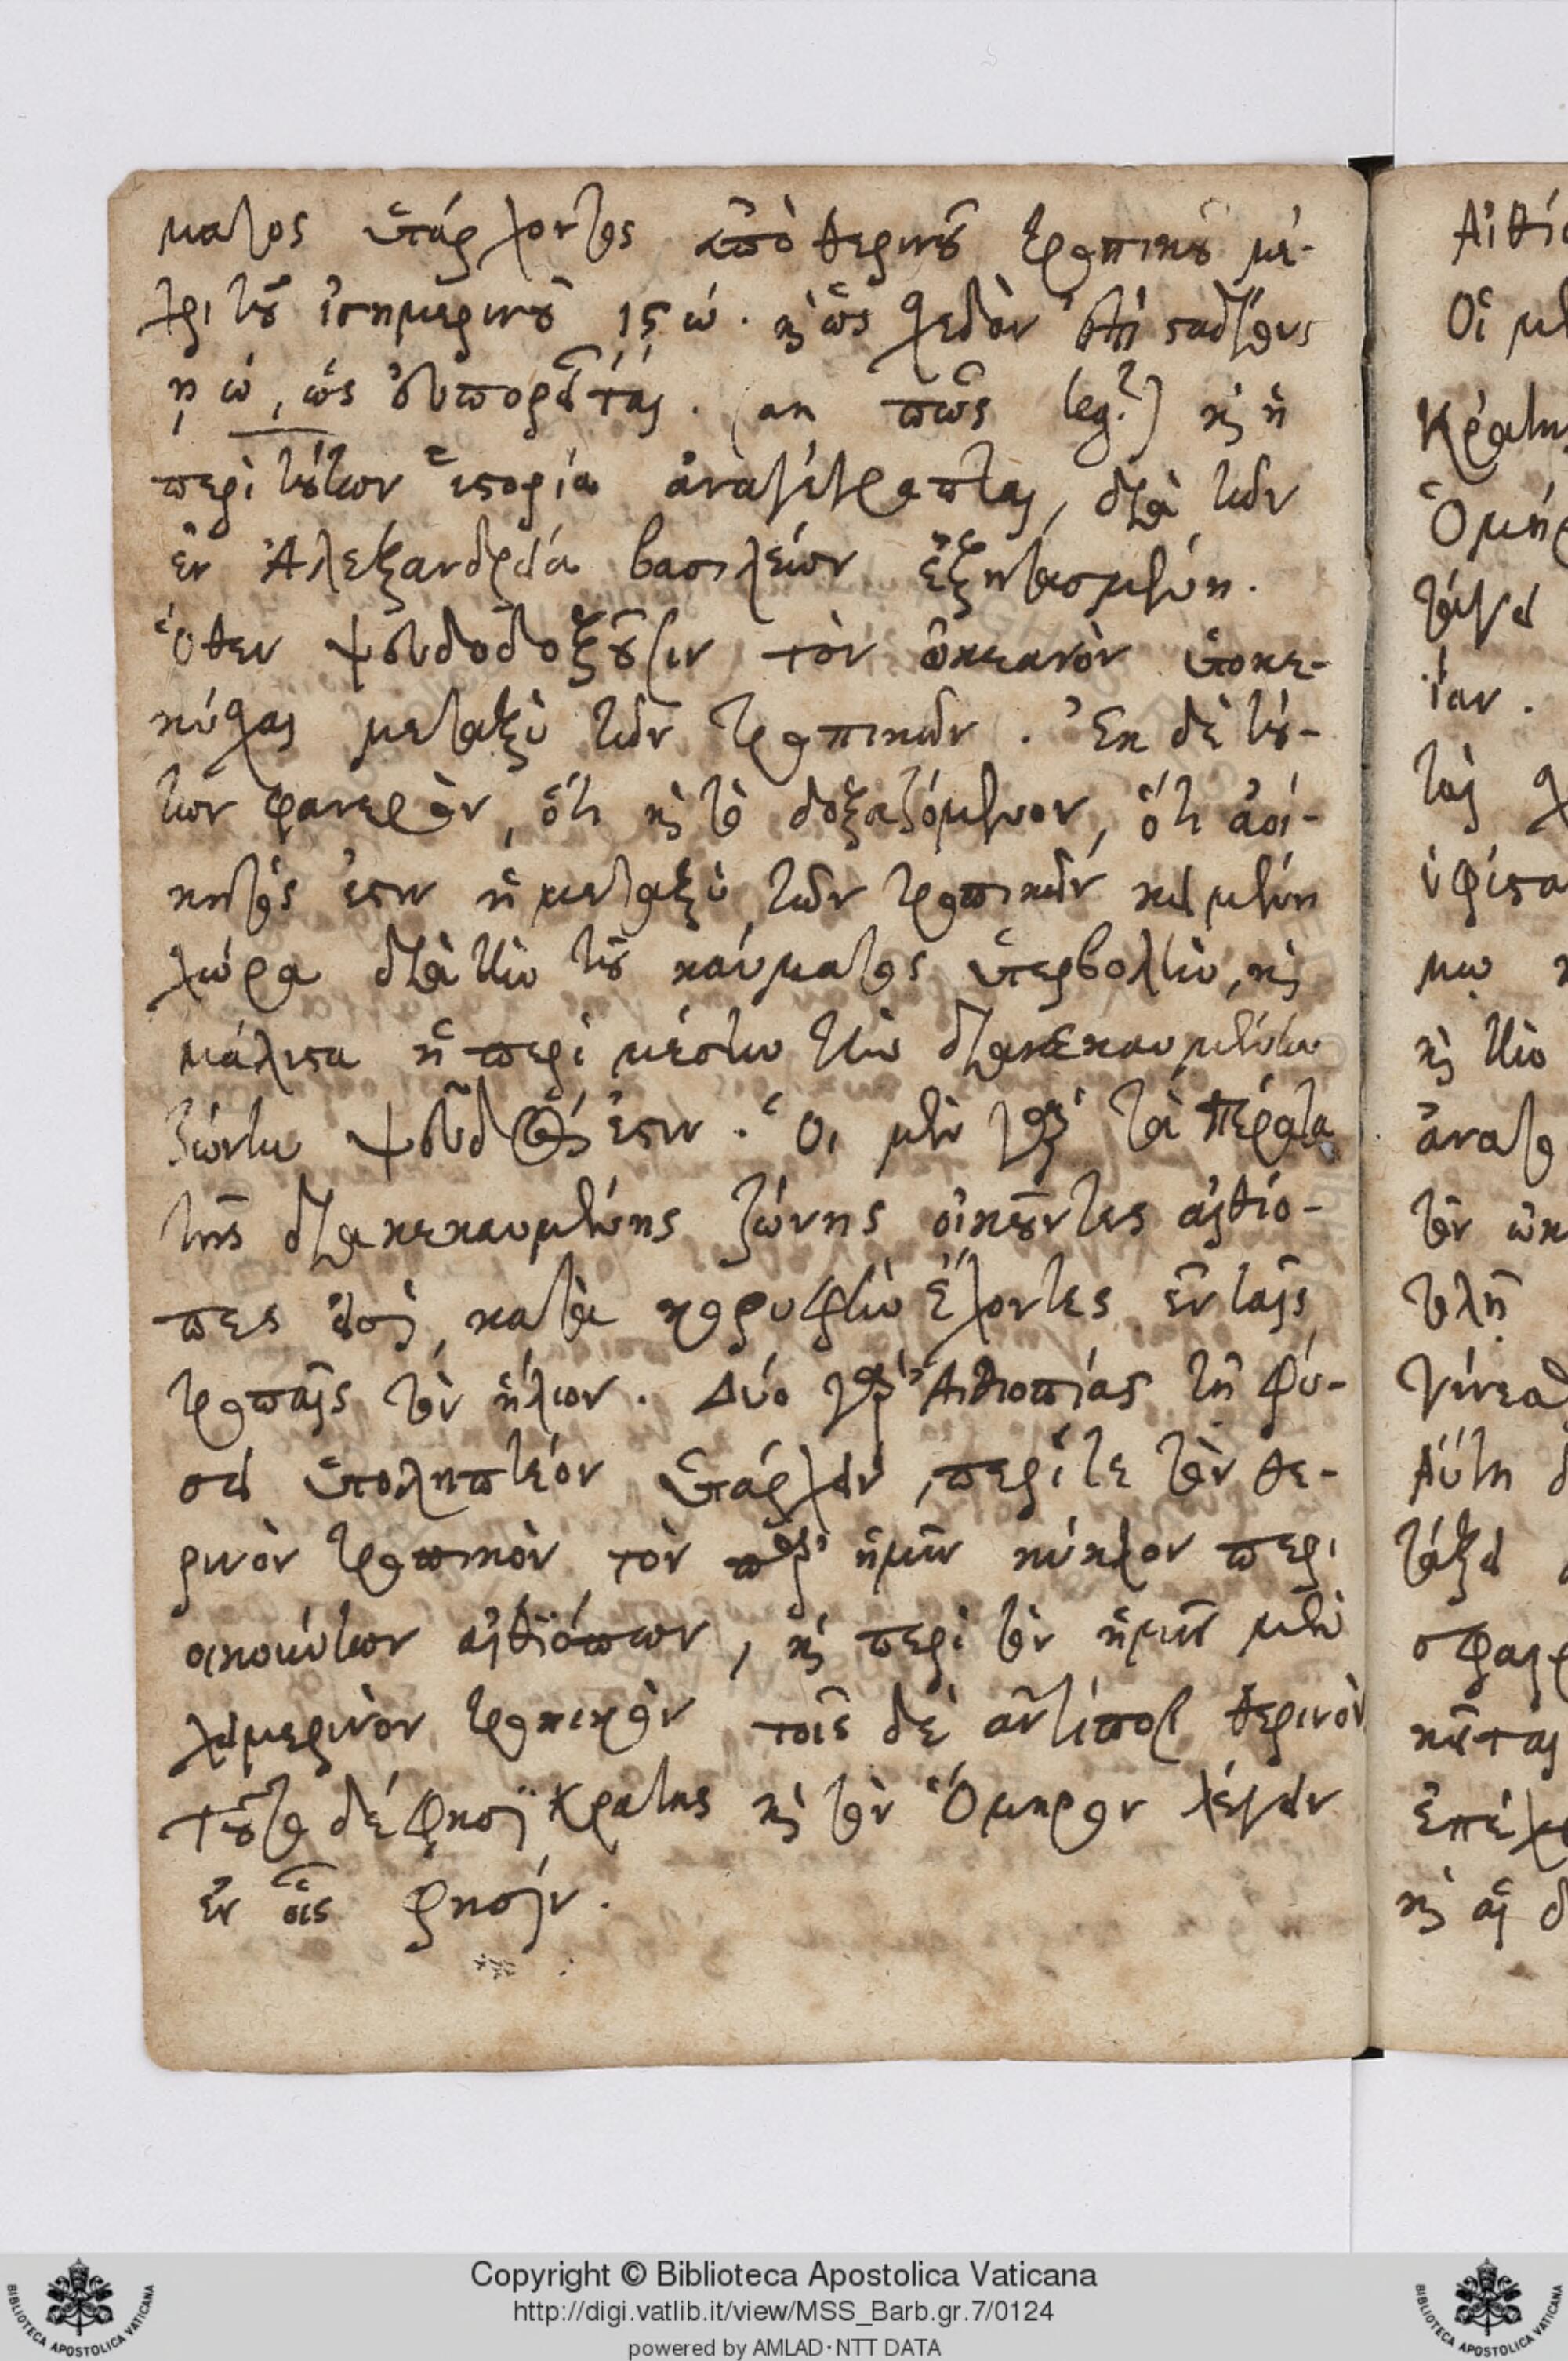 ματος ὑπάρχοντος ἀπὸ θερινοῦ τροπικοῦ μέ-
χρι τοῦ ἰσημερινοῦ ις ώ. καὶ ὡς σχεδὸν ἐπὶ σταδίους
η ώ, ὡς εὐπορεῖται. (an πῶς leg.?) καὶ ἡ
περὶ τούτων ἱστορία ἀναγέγραπται, διὰ τῶν
ἐν Ἀλεξανδρείᾳ βασιλείων ἐξητασμένη.
Ὅθεν ψευδοδοξοῦσιν τὸν ὠκεανὸν ὑποκε-
κύσθαι μεταξὺ τῶν τροπικῶν. Ἐκ δὲ τού-
των φανερὸν, ὅτι καὶ τὸ δοξαζόμενον, ὅτι ἀοί-
κητός ἐστιν ἡ μεταξὺ τῶν τροπικῶν κειμένη
χώρα διὰ τὴν τοῦ καύματος ὑπερβολὴν, καὶ
μάλιστα ἡ περὶ μέσην τὴν διακεκαυμένην
ζώνην ψεῦδός ἐστιν. Οἱ μὲν γὰρ τὰ πέρατα
τῆς διακεκαυμένης ζώνης οἰκοῦντες αἰθίο-
πες εἰσὶ, κατὰ κορυφὴν ἔχοντες ἐν ταῖς
τροπαῖς τὸν ἥλιον. Δύο γὰρ Αἰθιοπίας τῇ φύ-
σει ὑποληπτέον ὑπάρχειν, περί τε τὸν θε-
ρινὸν τροπικὸν τὸν παρ' ἡμῖν κύκλον περι
οικούντων αἰθιόπων, καὶ περὶ τὸν ἡμῖν μὲν
χειμερινὸν τροπικὸν τοῖς δὲ ἀντίποσι θερινὸν
τοῦτο δέ φησι Κράτης καὶ τὸν Ὅμηρον λέγειν
ἐν οἷς φησίν.
Αἰθί
Οἳ μ
Κράτη
Ὁμήρ
ίαν.
ὑφίστα
καὶ τὴν
Αὕτη δ
καὶ αἱ δ
Copyright © Biblioteca Apostolica Vaticana
http://digi.vatlib.it/view/MSS_Barb.gr.7/0124
powered by AMLAD·NTT DATA
BIBLIOTECA APOSTOLICA VATICANA
BIBLIOTECA APOSTOLICA VATICANA